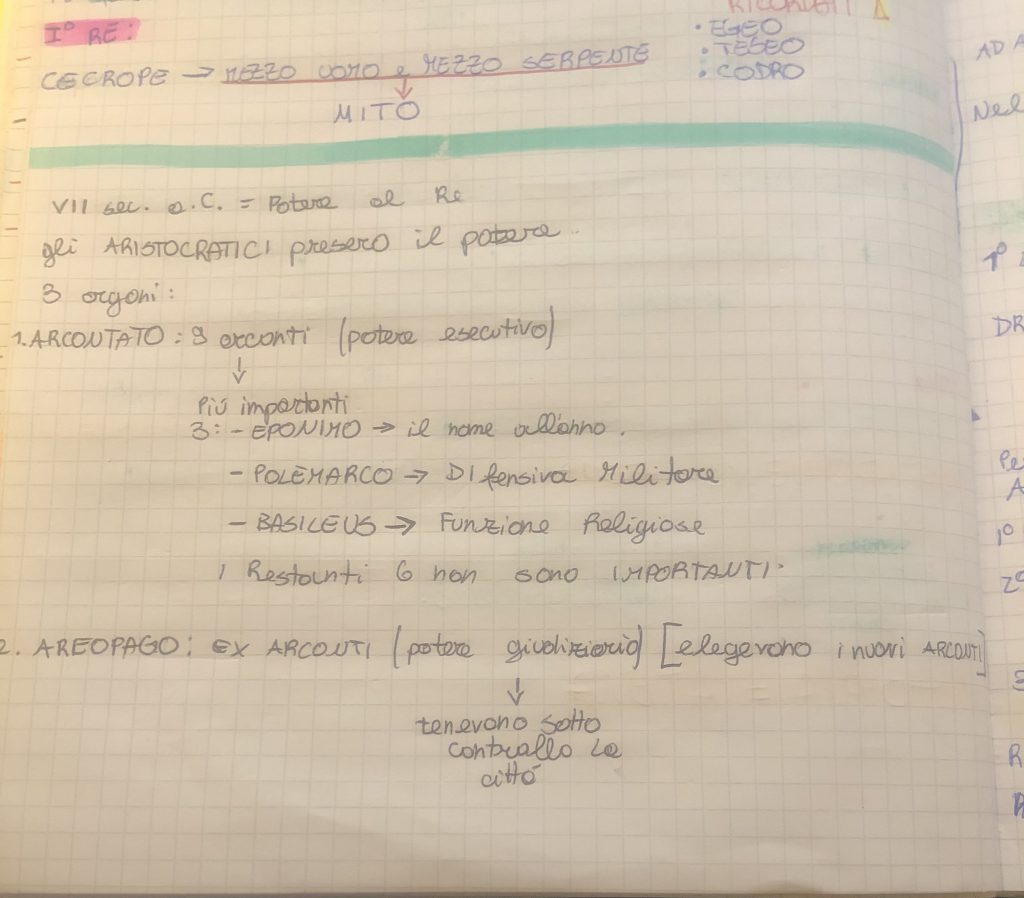 RICORDATI
I° RE:
• EGEO
• TESEO
• CODRO
CECROPE → MEZZO UOMO e MEZZO SERPENTE
↓
MITO
VII sec. a.C. = Potere al Re
gli ARISTOCRATICI presero il potere.
3 organi:
1. ARCONTATO: 9 arconti (potere esecutivo)
↓
Più importanti
3: - EPONIMO → il nome all'anno.
- POLEMARCO → DIfensiva Militare
- BASILEUS → Funzione Religiose
I Restanti 6 non sono IMPORTANTI.
2. AREOPAGO: EX ARCONTI (potere giudiziario) [elegevano i nuovi ARCONTI]
↓
tenevano sotto
controllo la
città
AD A
Nel
1°
DR
Pe
A
1°
2°
R